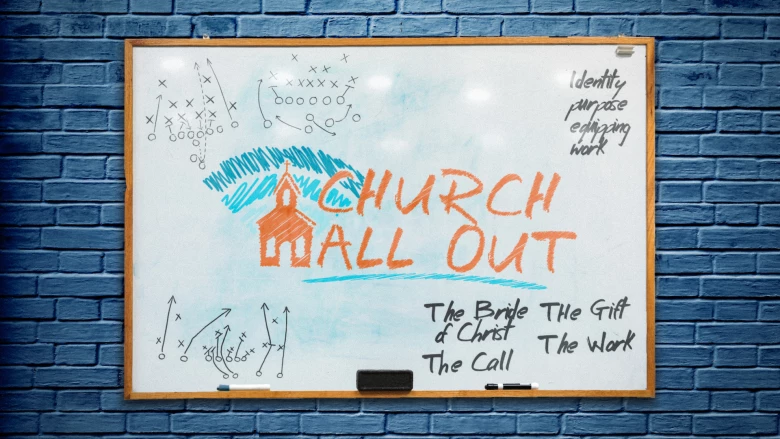 Identity
purpose
equipping
work
CHURCH
ALL OUT
The Bride
of Christ
The Call
THe Gift
The Work